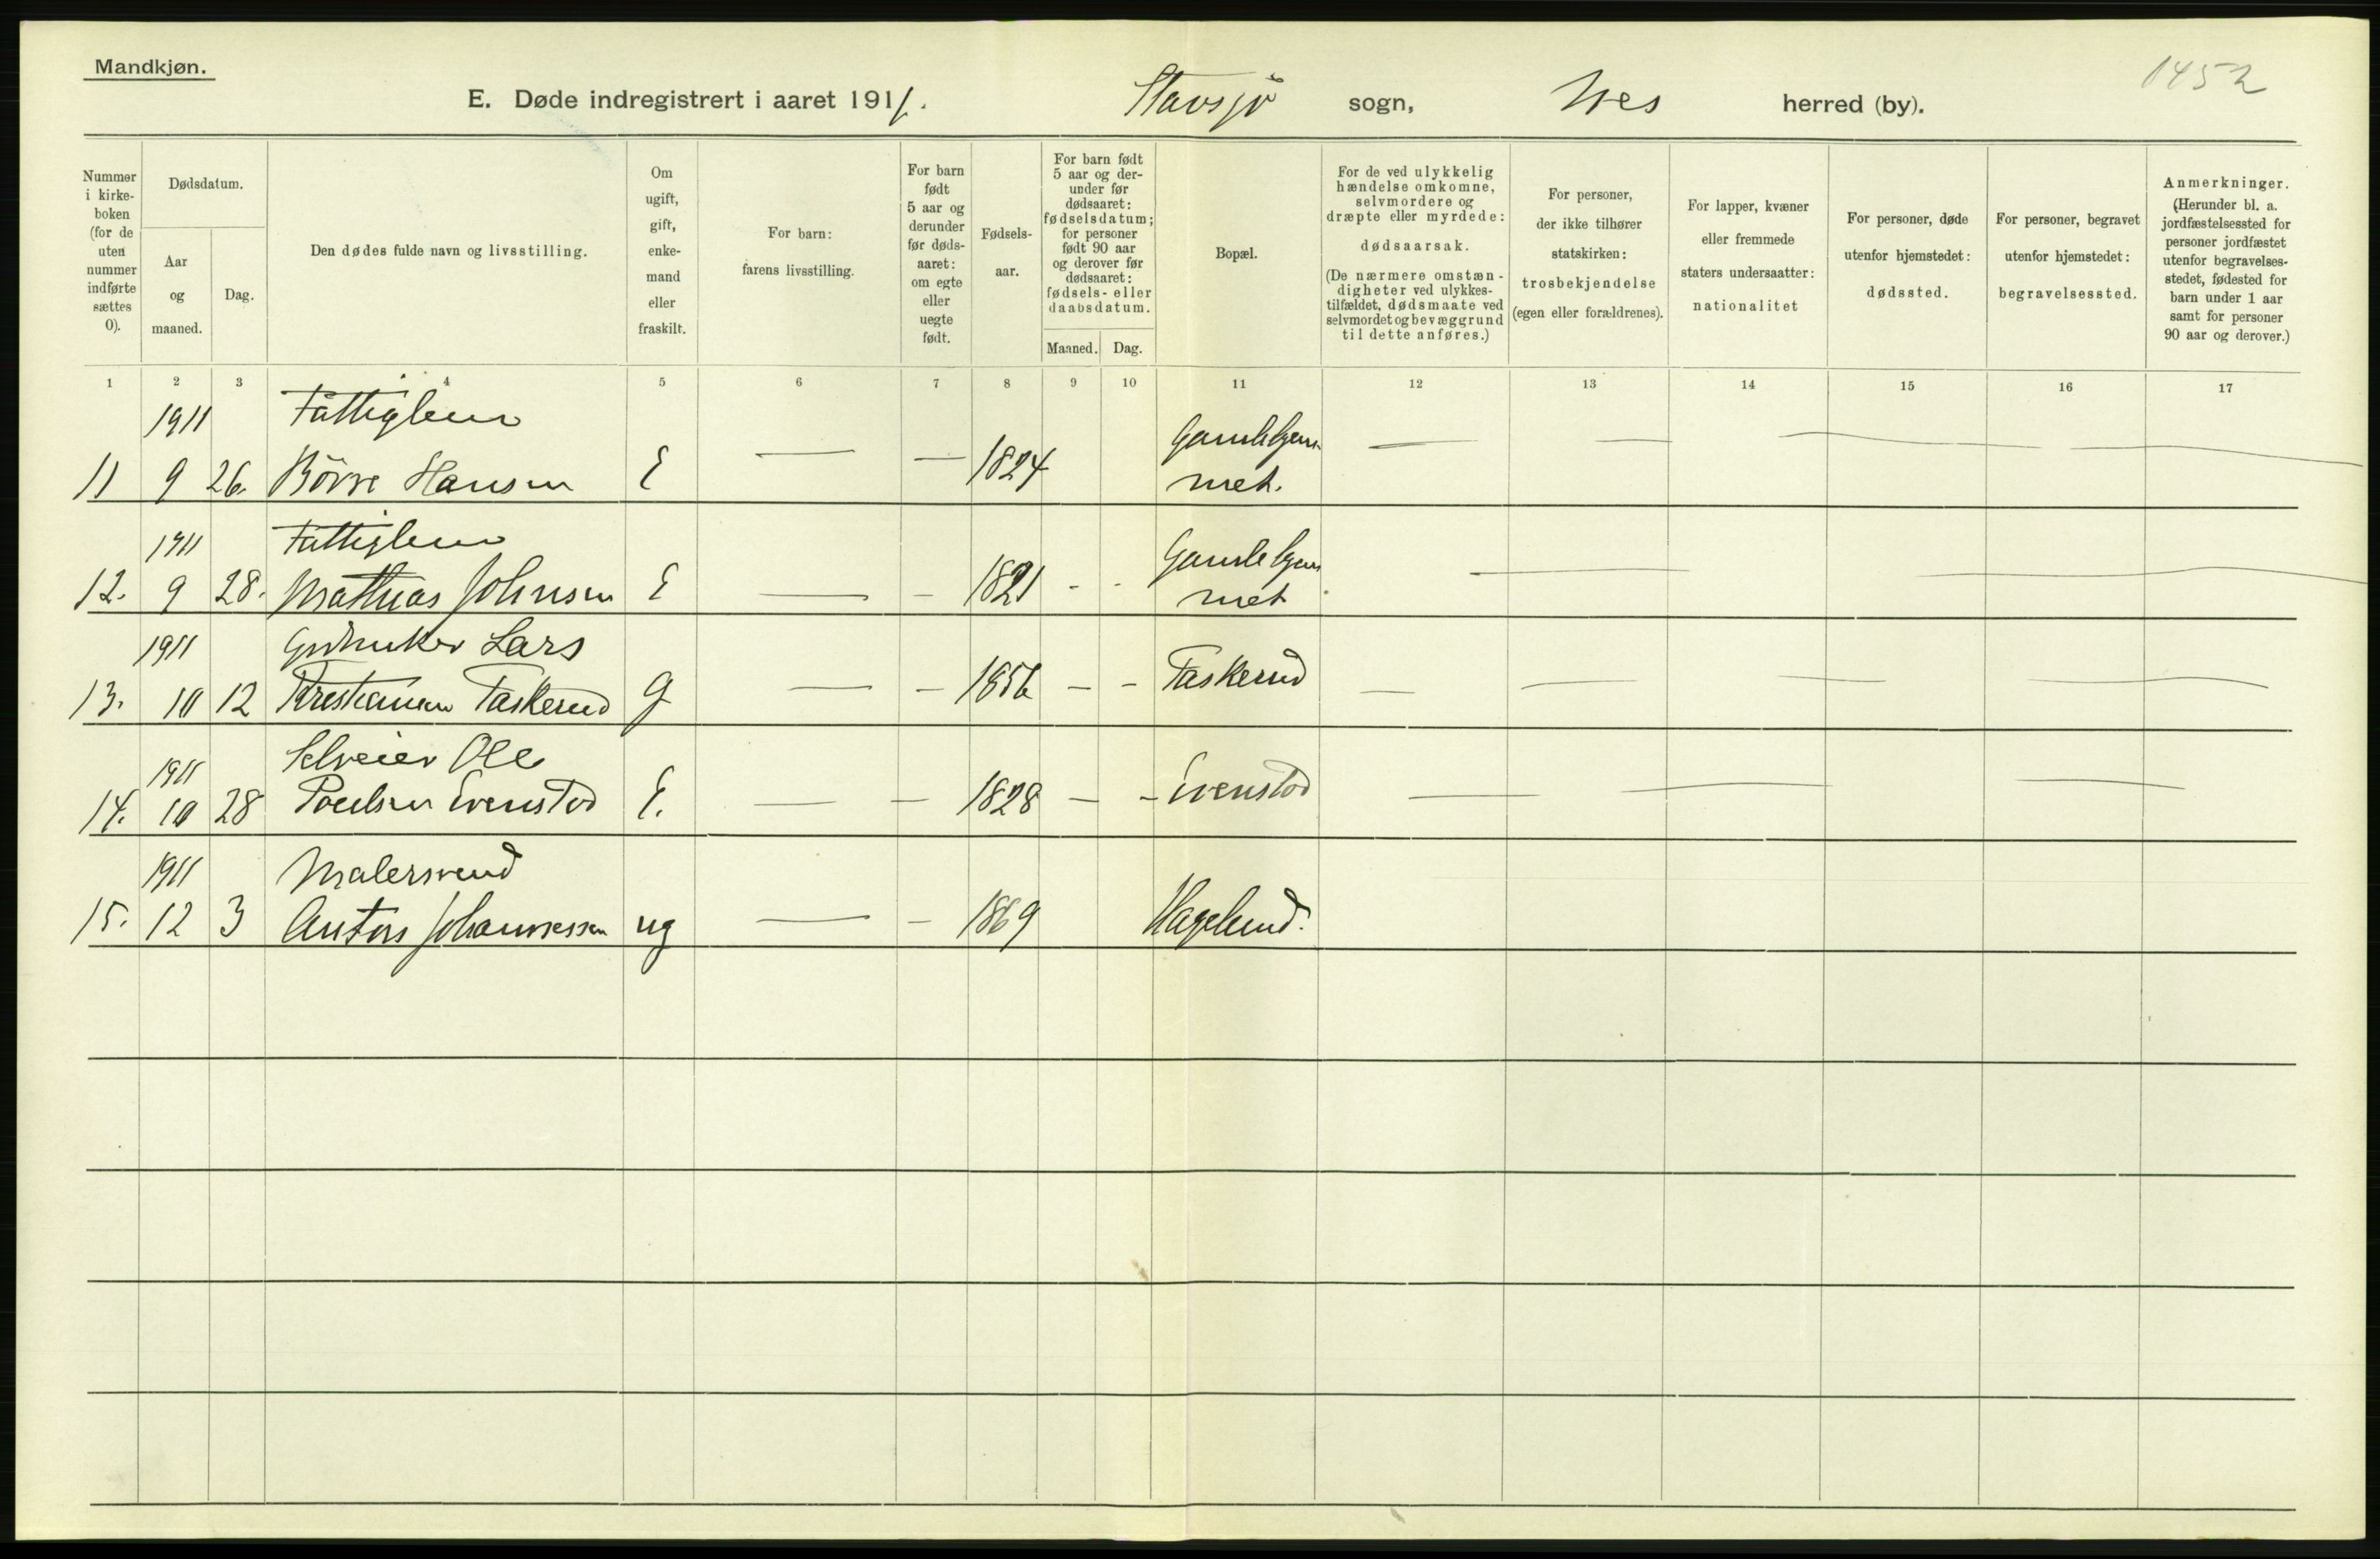 Mandkjøn.
1452
E. Døde indregistrert i aaret 1911. Stavsjø sogn, Nes herred (by).
Nummer i kirke-boken (for de uten nummer indførte sættes 0).
Dødsdatum.
Aar og maaned.
Dag.
Den dødes fulde navn og livsstilling.
Om ugift, gift, enke-mand eller fraskilt.
For barn: farens livsstilling.
For barn født 5 aar og derunder før døds-aaret: om egte eller uegte født.
Fødsels-aar.
For barn født 5 aar og der-under før dødsaaret: fødselsdatum; for personer født 90 aar og derover før dødsaaret: fødsels- eller daabsdatum.
Maaned. Dag.
Bopæl.
For de ved ulykkelig hændelse omkomne, selvmordere og dræpte eller myrdede: dødsaarsak. (De nærmere omstæn-digheter ved ulykkes-tilfældet, dødsmaate ved selvmordet og bevæggrund til dette anføres.)
For personer, der ikke tilhører statskirken: trosbekjendelse (egen eller forældrenes).
For lapper, kvæner eller fremmede staters undersaatter: nationalitet
For personer, døde utenfor hjemstedet: dødssted.
For personer, begravet utenfor hjemstedet: begravelsessted.
Anmerkninger. (Herunder bl. a. jordfæstelsessted for personer jordfæstet utenfor begravelses-stedet, fødested for barn under 1 aar samt for personer 90 aar og derover.)
1 2 3 4 5 6 7 8 9 10 11 12 13 14 15 16 17
1911 Fattiglem
11 9 26. Börre Hansen E — — 1824 — — — —
met.
1911 Fattiglem
12. 9 28. Mathias Johnsen E — — 1821 - - — —
met
1911 Grdbruker Lars
13. 10 12 Kristiansen Taskerud G — — 1856 — — Taskerud — — — —
1911 Selveier Ole
14. 10 28 Poulsen Evenstod E. — — 1828 — — Evenstod — — —
1911 Malersvend
15. 12 3 Anton Johannessen ug — — 1869 Hagelund.